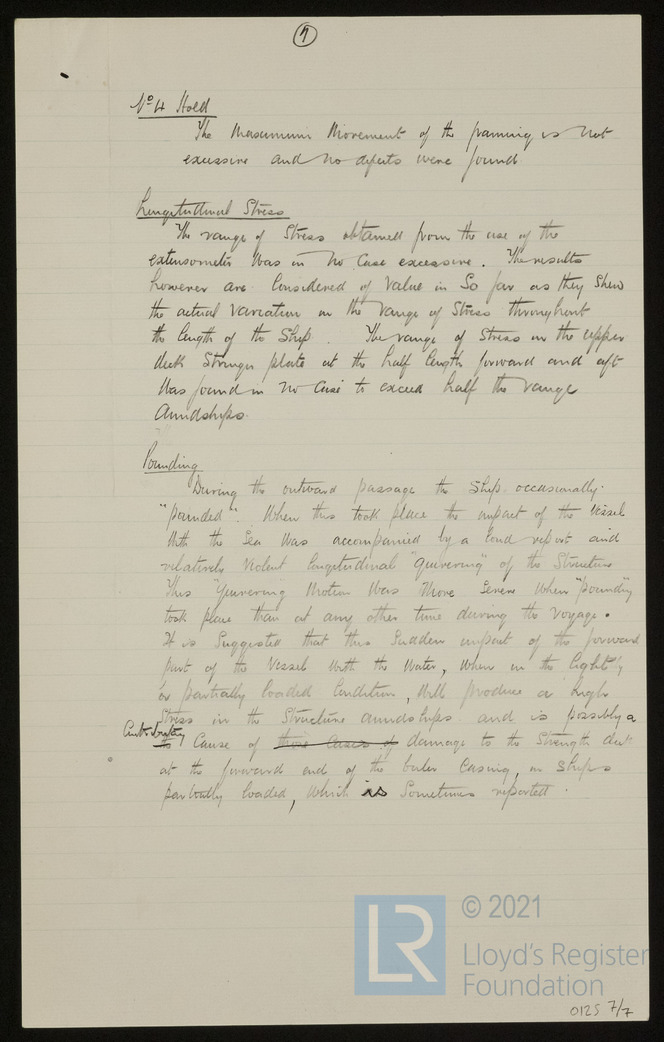 7
No 4 Hold
The Maximum Movement of the framing is not
excessive and no defects were found
Longitudinal Stress
The range of Stress obtained from the use of the
extensometer was in no case excessive. The results
however are Considered of Value in So far as they Shew
the actual Variation in the range of Stress throughout
the length of the Ship. The range of Stress in the upper
deck Stringer plate at the half length forward and aft
was found in no Case to exceed half the range
Amidships.
Pounding
During the outward passage the Ship occasionally
"pounded". When this took place the impact of the Vessel
with the Sea was accompanied by a loud report and
relatively Violent longitudinal "quivering" of the Structure
This "quivering" Motion was More Severe when "pounding"
took place than at any other time during the Voyage.
It is Suggested that this Sudden impact of the forward
part of the Vessel with the Water, when in the light
or partially loaded Condition, will produce a high
Stress in the Structure amidships and is possibly a
Contributory
the Cause of those Cases of damage to the Strength deck
at the forward end of the boiler Casing, in Ships
partially loaded, which is Sometimes reported.
LR
© 2021
Lloyd's Register
Foundation
0125 7/7